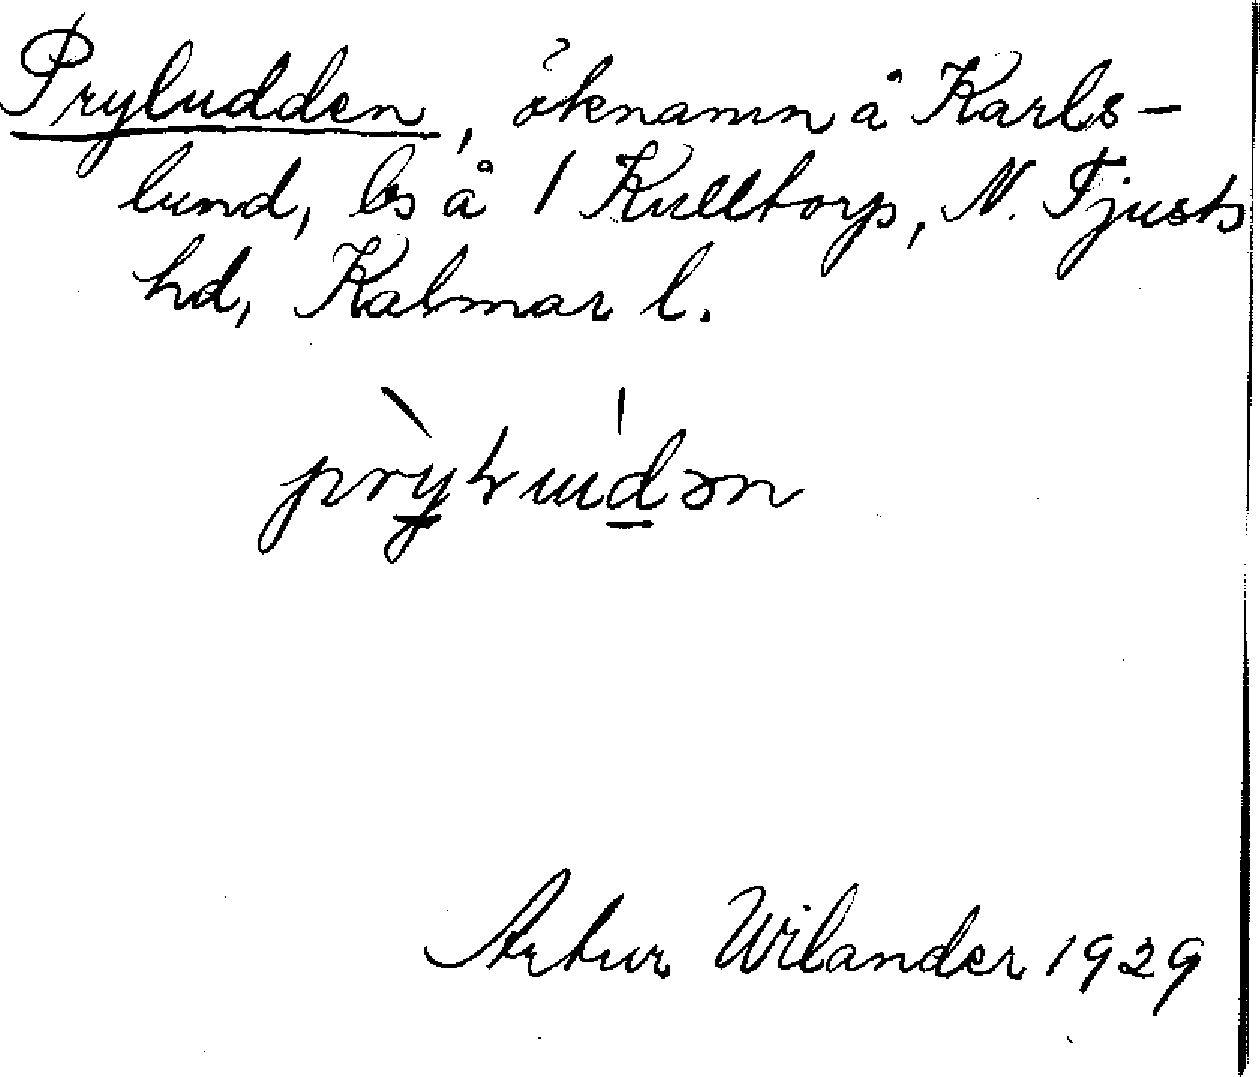 Pryludden, öknamn å Karls-
lund, ls å 1 Kulltorp, N. Tjusts
hd, Kalmar l.
Artur Wilander 1929